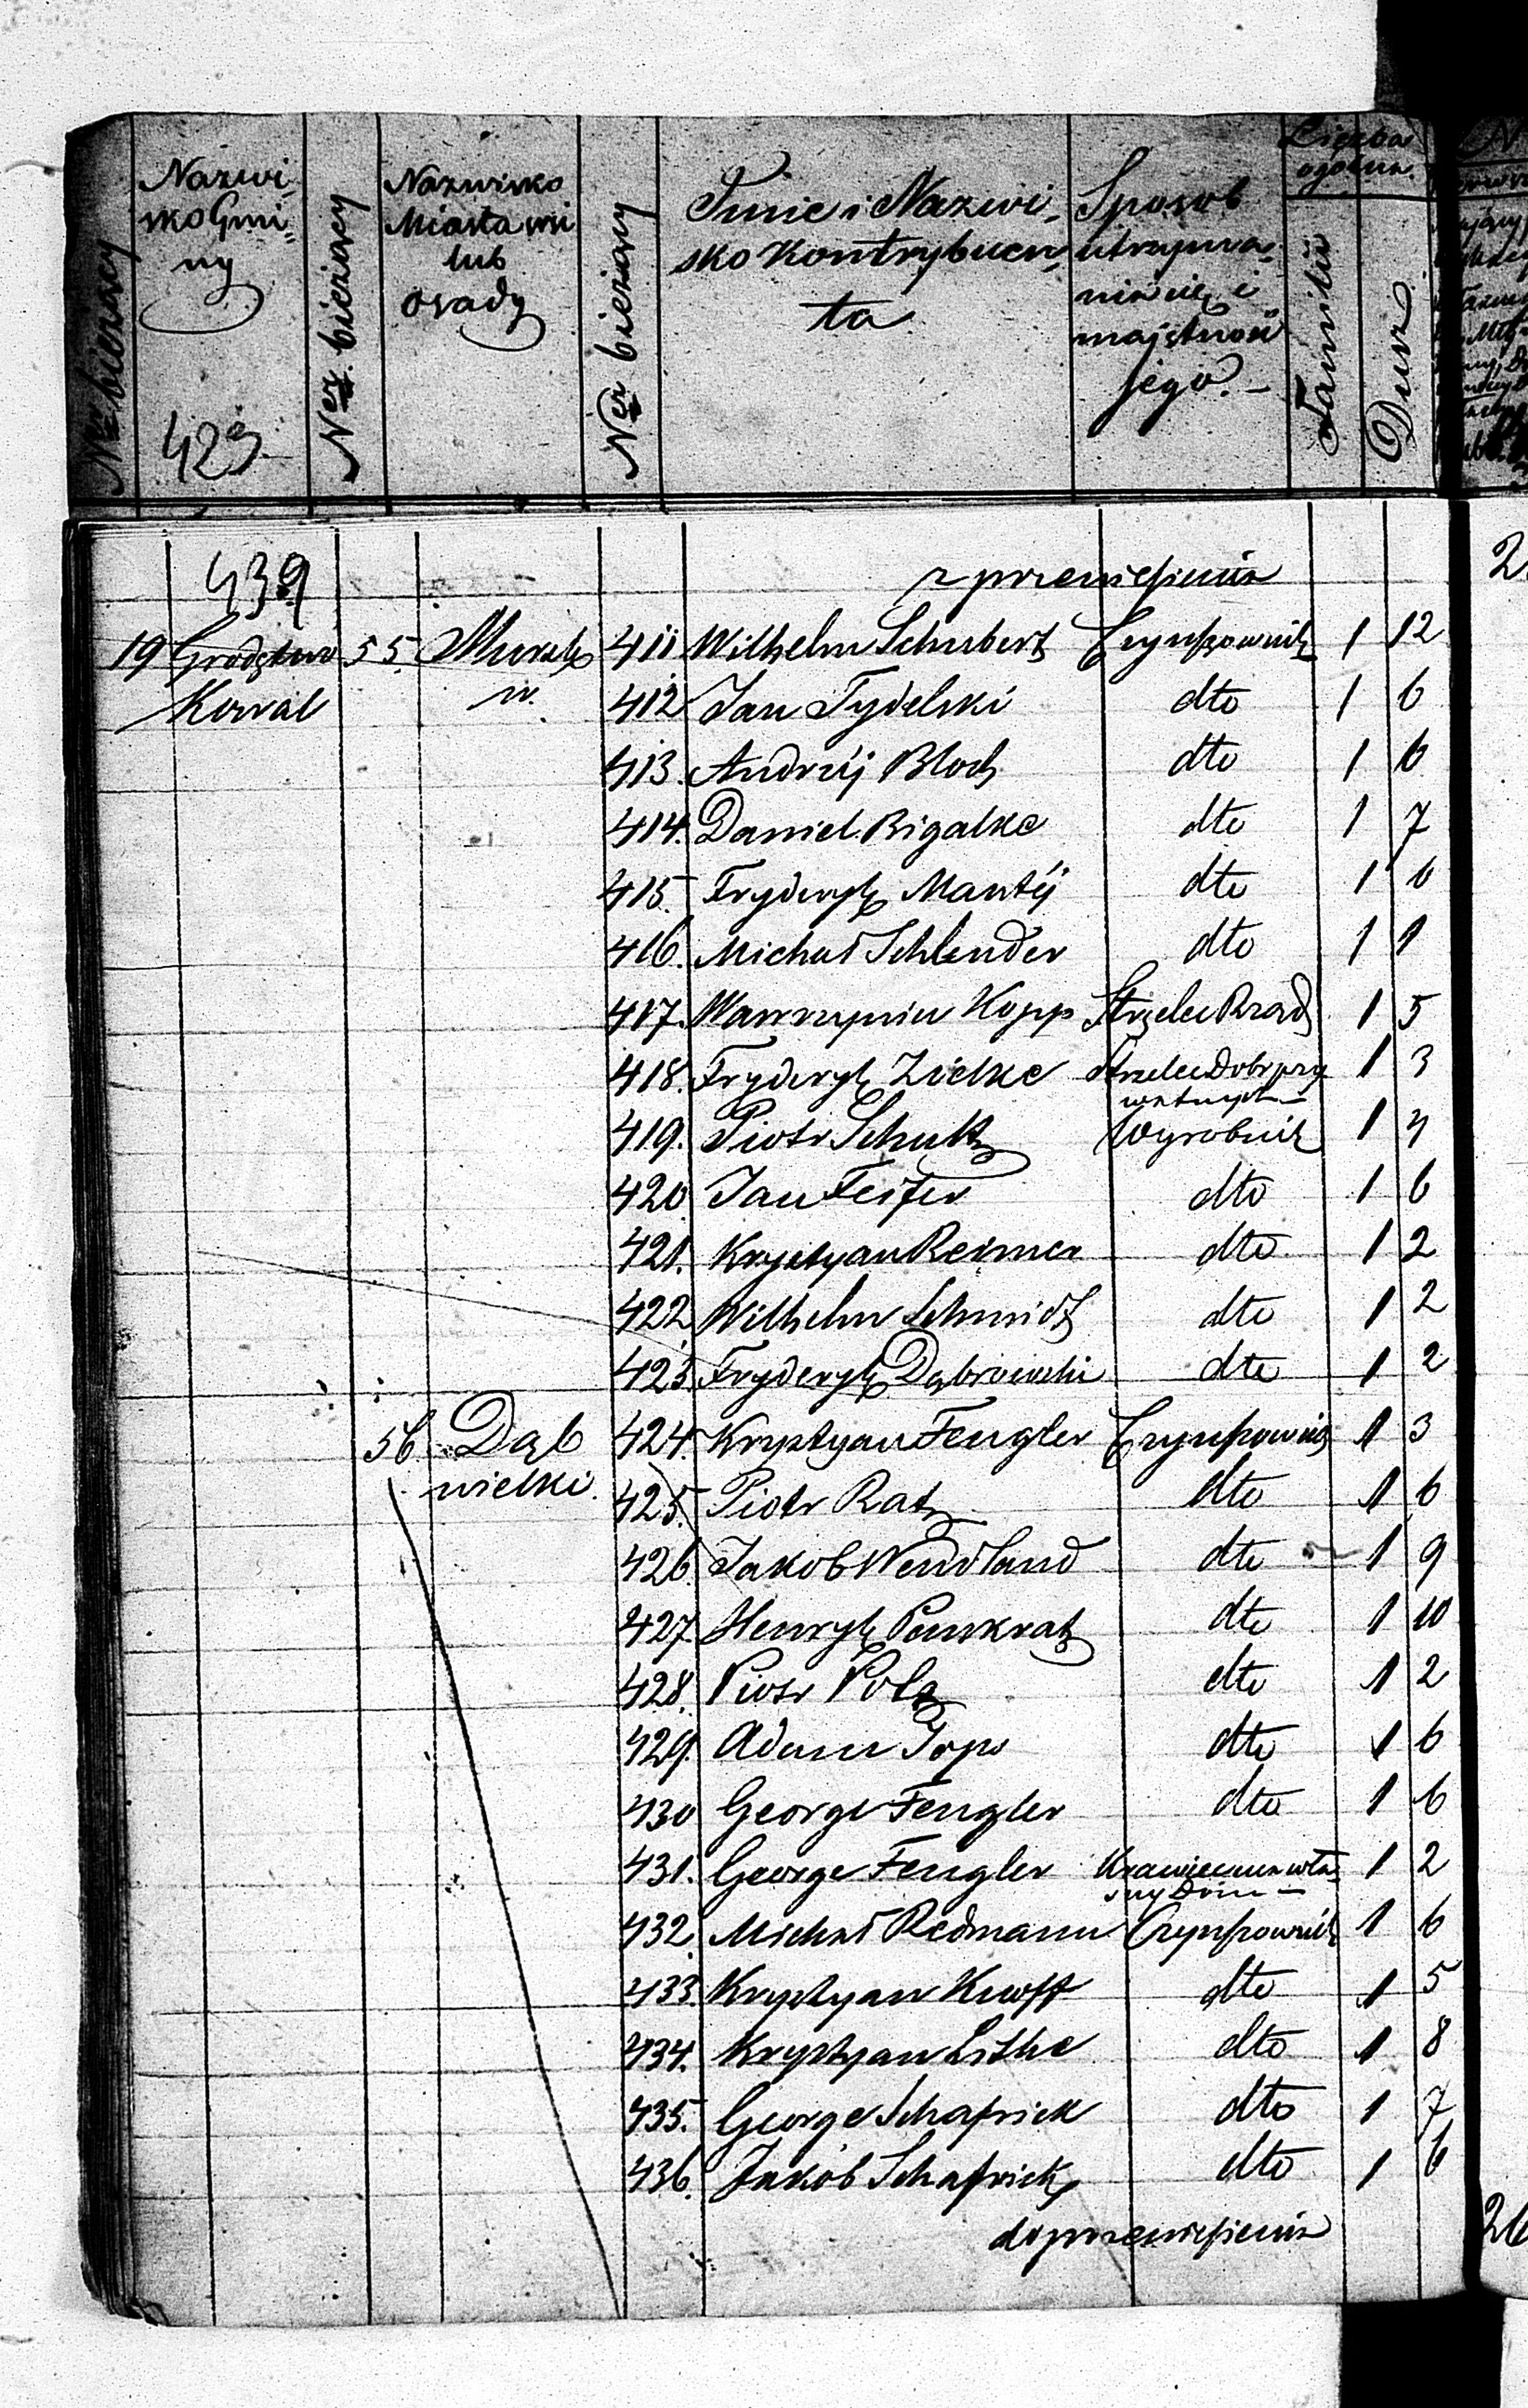 Ner bieżący
Nazwi-
sko Gmi-
ny
423
Ner bieżący
Nazwisko
Miasta wsi
lub
osady
Ner bieżący
Imie i Nazwi-
sko Kontrybuen-
ta
Sposob
utrzyma-
nia się i
majętność
jego.-
Liczba
ogólna
Familii
Dusz
439
z przeniesienia
19 Grodztwo 55. 411 Wilhelm Schubert Czynszownik 1 12
Kowal 412 Jan Tydelski dto 1 6
413. Andrzéj Bloch dto 1 6
414. Daniel Rigalke dto 1 7
415. Fryderyk Mantéj dto 1 6
416. Michał Schlender dto 1 1
417. Wawrzyniec Kopp Strzelec Rząd 1 5
418. Fryderyk Zielke Strzelec Dobr pry
watnych
1 3
419. Piotr Schultz Wyrobnik 1 4
420 Jan Feifer dto 1 6
421. Krystyan Reimer dto 1 2
422 Wilhelm Schmidt dto 1 2
423. Fryderyk Dąbrowski dto 1 2
56 Dąb 424. Krystyan Fengler Czynszownik 1 3
wielki. 425. Piotr Ratz dto 1 6
426. Jakob Wendland dto 1 9
427. Henryk Pankratz dto 1 10
428. Piotr dto 1 2
429. Adam dto 1 6
430 George Fengler dto 1 6
431. George Fengler Krawiec ma wła-
sny Dom
1 2
432. Michał Redmann Czynszownik 1 6
433. Krystyan dto 1 5
434. Krystyan dto 1 8
435. George Schafrick dto 1 7
436. Jakób Schafrick dto 1 6
do przeniesienia